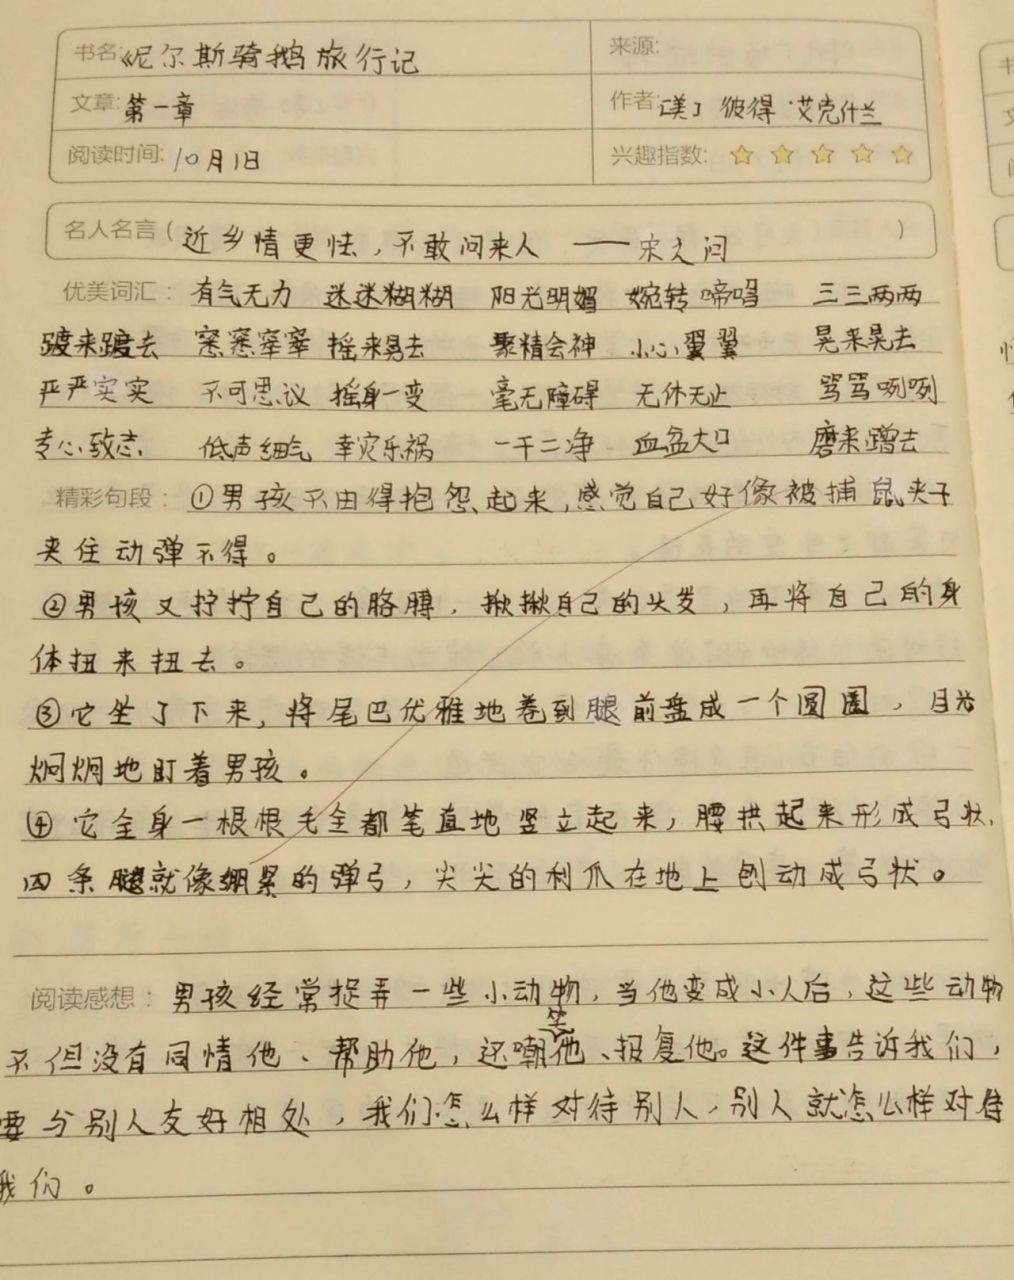 书名:《尼尔斯骑鹅旅行记 来源:
文章:第一章 作者:[美] 彼得·艾克什兰
阅读时间:10月1日 兴趣指数:
名人名言(近乡情更怯,不敢问来人 ——宋之问)
优美词汇:有气无力 迷迷糊糊 阳光明媚 婉转啼唱 三三两两
踱来踱去 窸窸窣窣 摇来晃去 聚精会神 小心翼翼 晃来晃去
严严实实 不可思议 摇身一变 毫无障碍 无休无止 骂骂咧咧
专心致志 低声细气 幸灾乐祸 一干二净 血盆大口 磨来蹭去
精彩句段:①男孩不由得抱怨起来,感觉自己好像被捕鼠夹子
夹住动弹不得。
②男孩又拧拧自己的胳膊,揪揪自己的头发,再将自己的身
体扭来扭去。
③它坐了下来,将尾巴优雅地卷到腿前盘成一个圆圈,目光
炯炯地盯着男孩。
④它全身一根根毛全都笔直地竖立起来,腰拱起来形成弓状,
四条腿就像绷紧的弹弓,尖尖的利爪在地上刨动成弓状。
阅读感想:男孩经常捉弄一些小动物,当他变成小人后,这些动物
不但没有同情他、帮助他,还嘲笑他、报复他。这件事告诉我们,
要与别人友好相处,我们怎么样对待别人,别人就怎么样对待
我们。